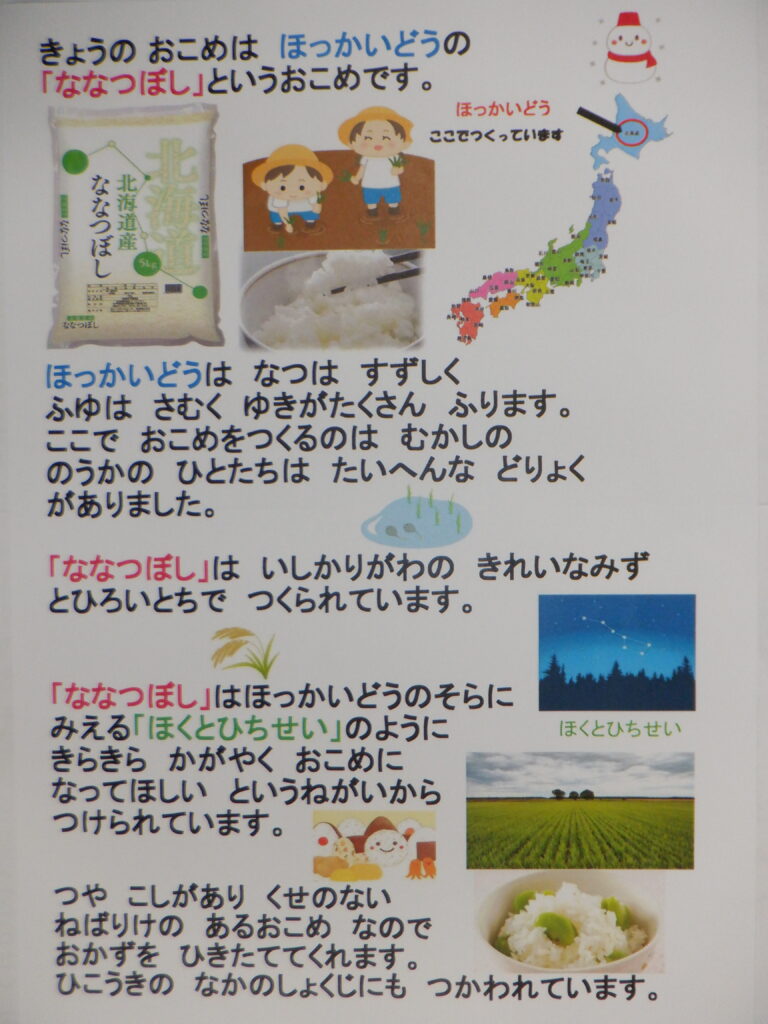 きょうの おこめは ほっかいどうの
「ななつぼし」というおこめです。
ほっかいどう
ここでつくっています
北海道
北海道産
ななつぼし
5kg
ななつぼし
ななつぼし
ななつぼし
ほっかいどうは なつは すずしく
ふゆは さむく ゆきがたくさん ふります。
ここで おこめをつくるのは むかしの
のうかの ひとたちは たいへんな どりょく
がありました。
「ななつぼし」は いしかりがわの きれいなみず
とひろいとちで つくられています。
「ななつぼし」はほっかいどうのそらに
みえる「ほくとひちせい」のように
きらきら かがやく おこめに
なってほしい というねがいから
つけられています。
ほくとひちせい
つや こしがあり くせのない
ねばりけの あるおこめ なので
おかずを ひきたててくれます。
ひこうきの なかのしょくじにも つかわれています。